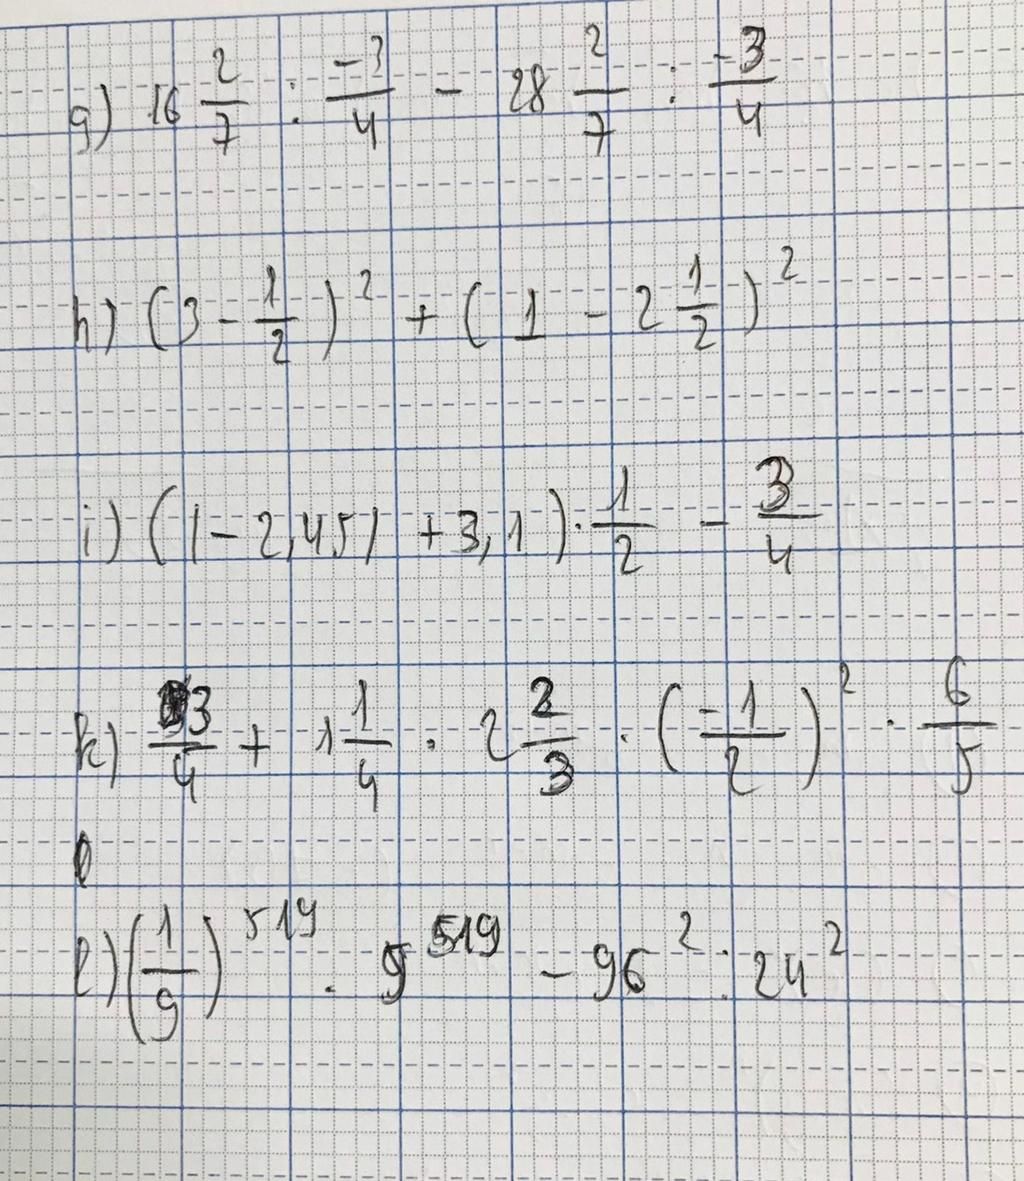 g) 16 2/7 : -3/4 - 28 2/7 : -3/4
h) (3 - 1/2)² + (1 - 2 1/2)²
i) (|-2,45| + 3,1) . 1/2 - 3/4
k) 3/4 + 1 1/4 . 2 2/3 . (-1/2)² . 6/5
l) (1/9)⁵¹⁹ . 9⁵¹⁹ - 96² : 24²